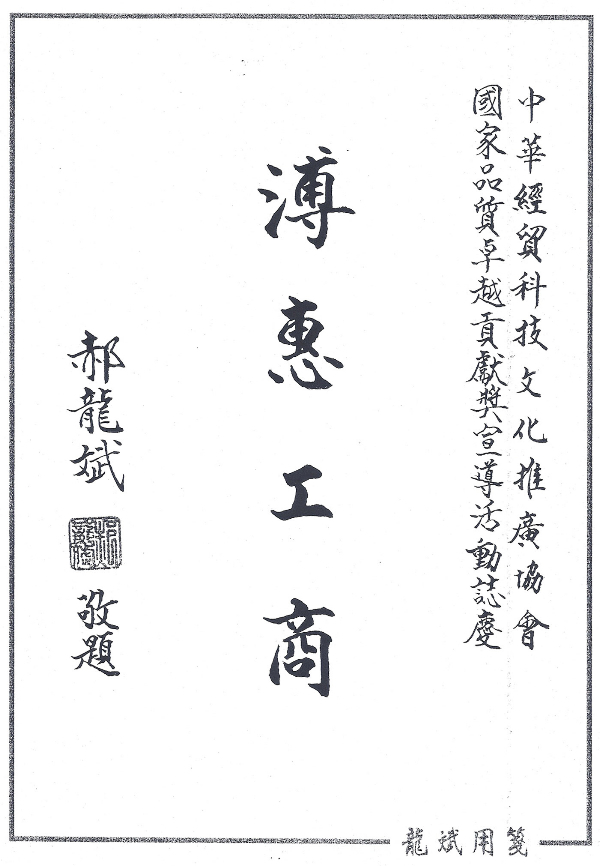 中華經貿科技文化推廣協會
國家品質卓越貢獻獎宣導活動誌慶
溥惠工商
郝龍斌
敬題
龍斌用箋